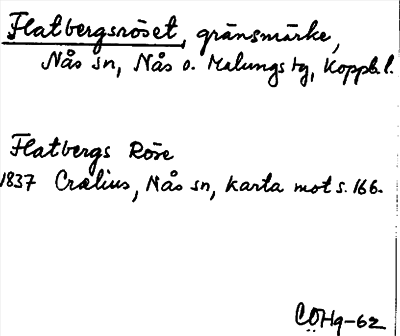 Flatbergsröset, gränsmärke,
Nås sn, Nås o. Malungs tg, Koppb. l.
Flatbergs Röse
1837 Crælius, Nås sn, karta mot s. 166.
CÖHg-62